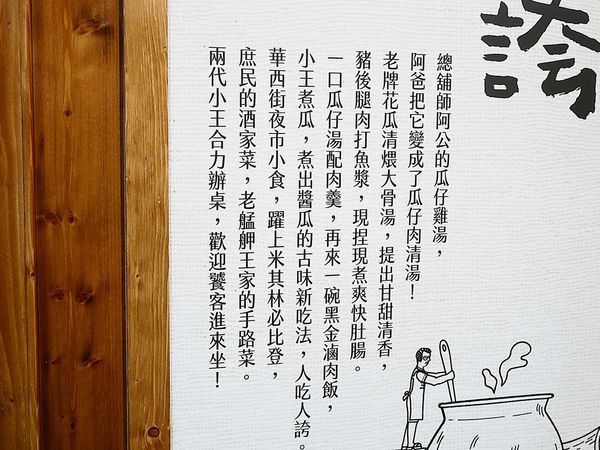 誇
總舖師阿公的瓜仔雞湯，
阿爸把它變成了瓜仔肉清湯！
老牌花瓜清煨大骨湯，提出甘甜清香，
豬後腿肉打魚漿，現捏現煮爽快肚腸。
一口瓜仔湯配肉羹，再來一碗黑金滷肉飯，
小王煮瓜，煮出醬瓜的古味新吃法，人吃人誇。
華西街夜市小食，躍上米其林必比登，
庶民的酒家菜，老艋舺王家的手路菜。
兩代小王合力辦桌，歡迎饕客進來坐！